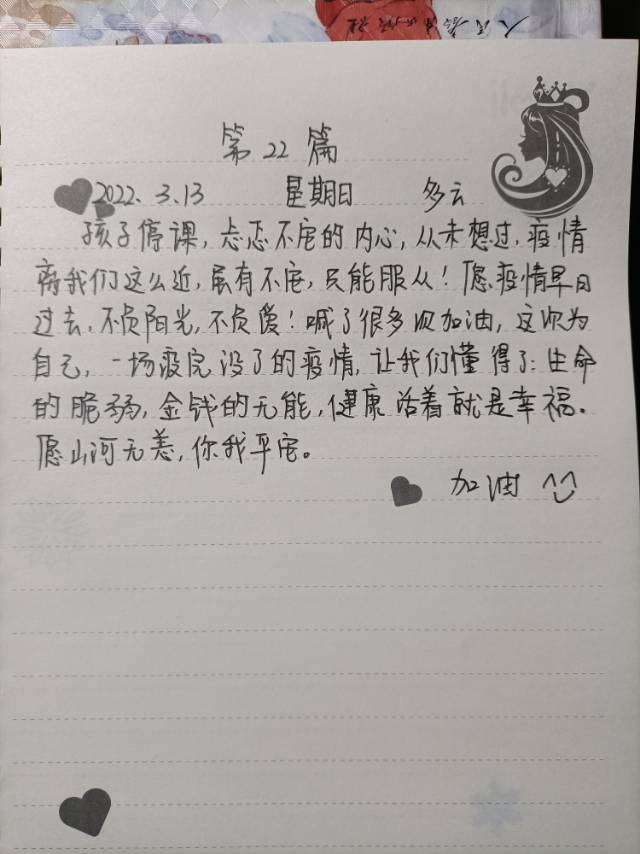 第22篇
2022.3.13 星期日 多云
孩子停课，忐忑不安的内心，从未想过，疫情
离我们这么近，虽有不安，只能服从！愿疫情早日
过去，不负阳光，不负爱！喊了很多次加油，这次为
自己，一场没完没了的疫情，让我们懂得了：生命
的脆弱，金钱的无能，健康活着就是幸福。
愿山河无恙，你我平安。
加油